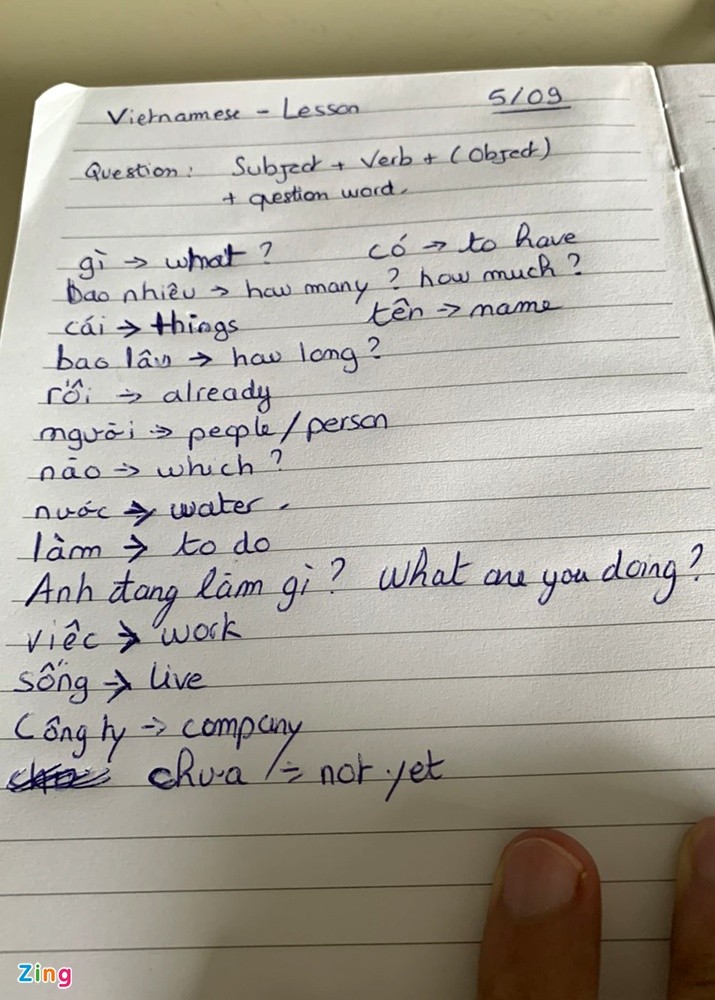 Vietnamese - Lesson 5/09
Question: Subject + Verb + (Object)
+ question word.
gì → what? có → to have
bao nhiêu → how many? how much?
cái → things tên → name
bao lâu → how long?
rồi → already
người → people/person
nào → which?
nước → water.
làm → to do
Anh đang làm gì? What are you doing?
việc → work
sống → live
Công ty → company
chưa /= not yet
Zing